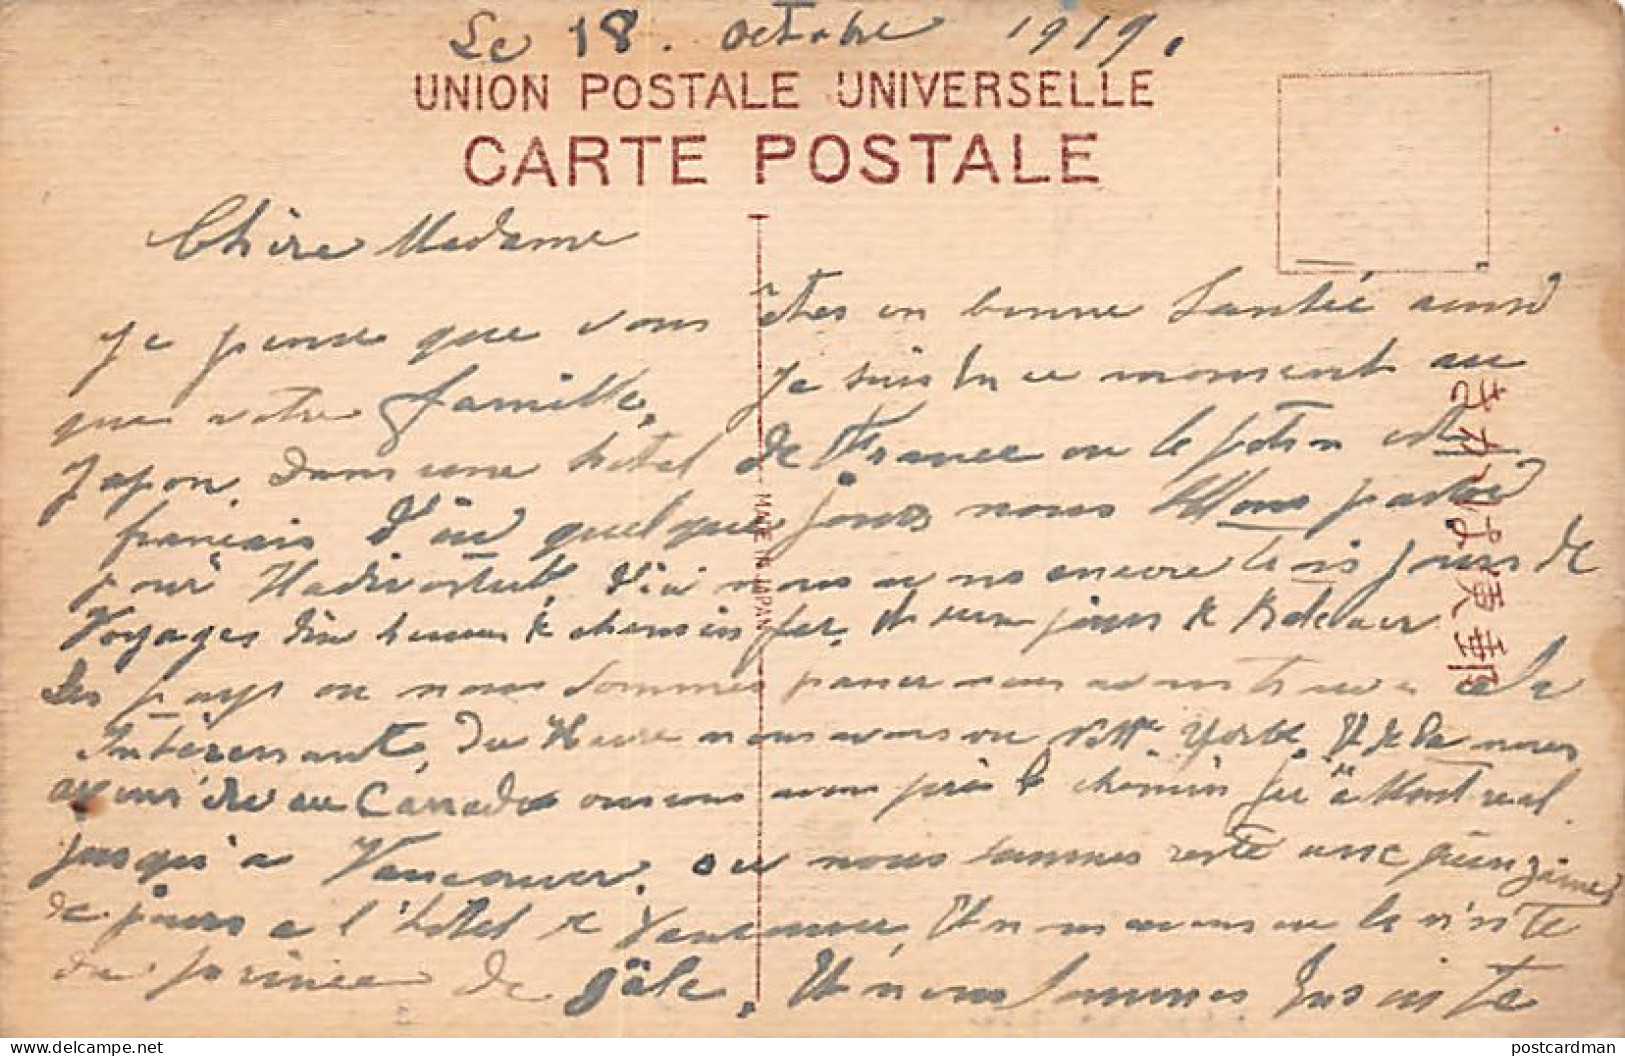 Le 18. octobre 1919.
UNION POSTALE UNIVERSELLE
CARTE POSTALE
Chère Madame
Je pense que vous êtes en bonne Santée ainsi
que votre famille. Je suis en ce moment au
Japon. Dans une hotel de France ou le patron est
français D'ici quelque jours nous allons partir
pour Vladivostock, D'ici nous avons encore trois jours de
Voyages de chemin fer. et jours de
Les pays ou nous sommes passer nous avons trouver cela
Intéressant, Du Havre nous avons vu New York. Et de la nous
avons été au Canada ou nous avons pris le chemin fer a Montreal
jusqu'a Vancouver. ou nous sommes resté une quinzaines
de jours a l'hotel de Vancouver, Et nous avons vu la visite
du prince de Gâle. Et nous sommes ensuite
MADE IN JAPAN
きかは便郵
postcardman
www.delcampe.net